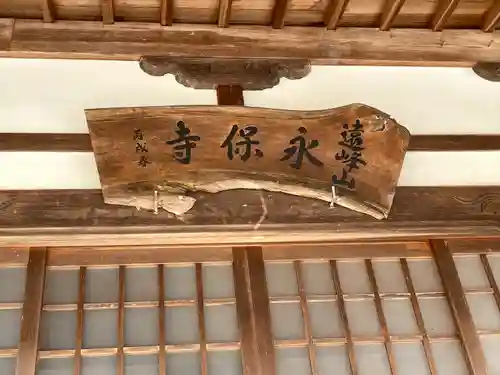 遠峰山
永保寺